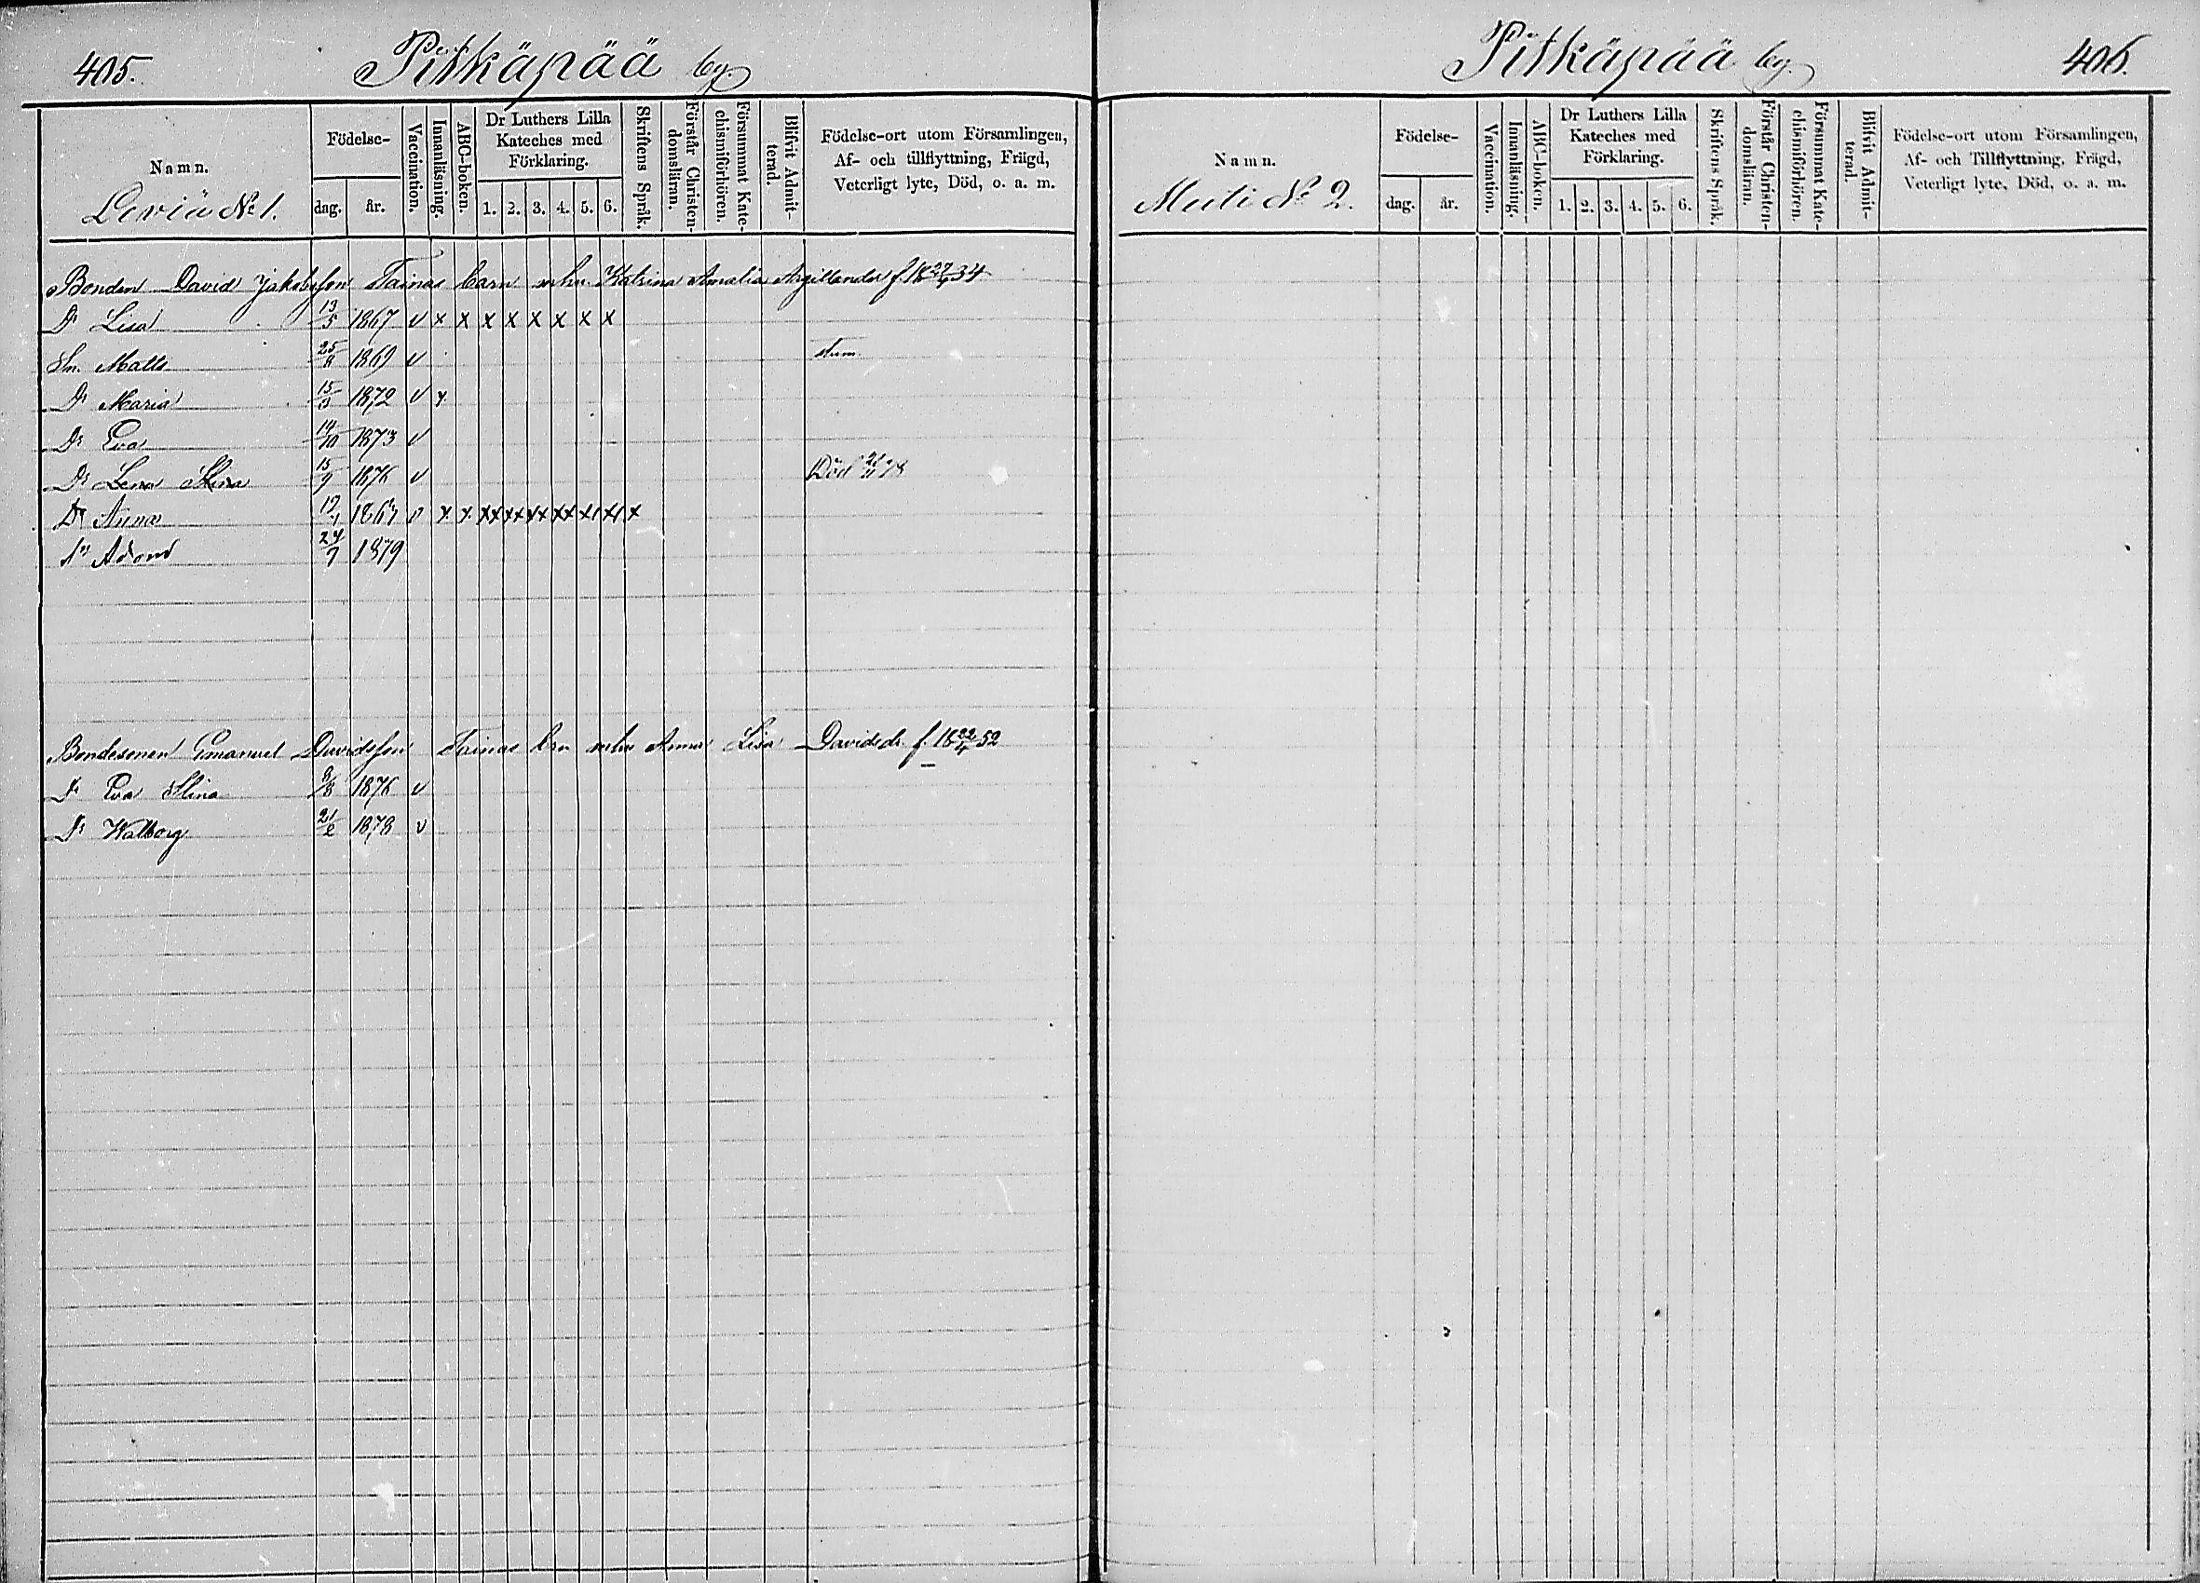 405.
Pitkäpää by.
Namn.
Leviä No 1.
Födelse-
dag.
år.
Vaccination.
Innanläsning.
ABC-boken.
Dr Luthers Lilla
Kateches med
Förklaring.
1. 2. 3. 4. 5. 6.
Skriftens Språk.
Förstår Christen-
domsläran.
Försummat Kate-
chismiförhören.
Blifvit Admit-
terad.
Födelse-ort utom Församlingen,
Af- och tillflyttning, Frägd,
Veterligt lyte, Död, o. a. m.
Bonden David Jakobsson Tainas barn mhu Katrina Amalia Argillander f. 18 34
Dr Lisa 13/5 1867 v x x x x x x x x
Sn. Matts 25/8 1869 v stum
Dr Maria 15/3 1872 v x
Dr Eva 14/10 1873 v
Dr Lena Stina 15/9 1876 v Död 78
Dr Anna 1863 v x x xx xx xx xx x x
Sn Adam 24/7 1879
Bondesonen Emanuel Davidsson Tainas brn mhu Anna Lisa Davidsdr. f. 18 22/4 52
Dr Eva Stina 8/8 1876 v
Dr Walborg 21/2 1878 v
Pitkäpää by.
406.
Namn.
Muli No 2.
Födelse-
dag.
år.
Vaccination.
Innanläsning.
ABC-boken.
Dr Luthers Lilla
Kateches med
Förklaring.
1. 2. 3. 4. 5. 6.
Skriftens Språk.
Förstår Christen-
domsläran.
Försummat Kate-
chismiförhören.
Blifvit Admit-
terad.
Födelse-ort utom Församlingen,
Af- och Tillflyttning, Frägd,
Veterligt lyte, Död, o. a. m.